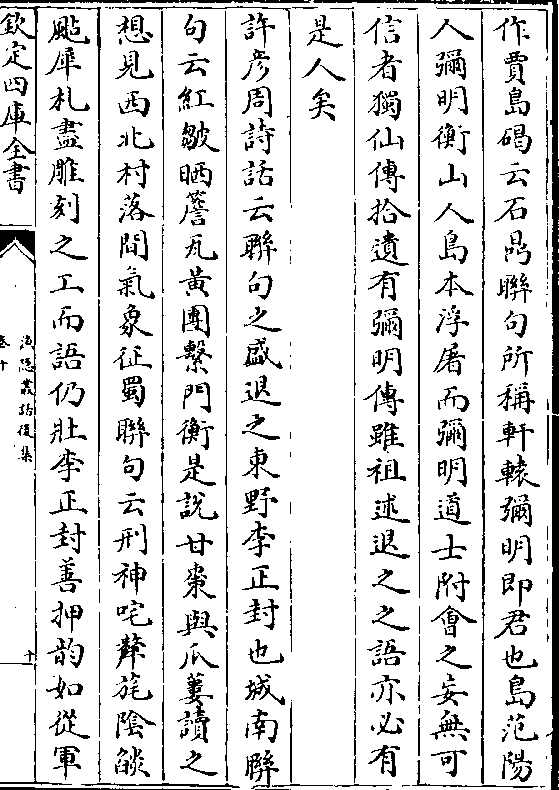 作賈島碣云石鼎聯句所稱軒轅彌明即君也島范陽
人彌明衡山人島本浮屠而彌明道士附會之妄無可
信者獨仙傳拾遺有彌明傳雖祖述退之之語亦必有
是人矣
許彦周詩話云聯句之盛退之東野李正封也城南聯
句云紅皺晒簷瓦黄團繫門衡是說甘棗與瓜蔞讀之
想見西北村落間氣象征蜀聯句云刑神咤犛旄陰燄
颭犀札盡雕刻之工而語仍壯李正封善押韵如從軍
欽定四庫全書
漁隱叢話後集
卷十
十